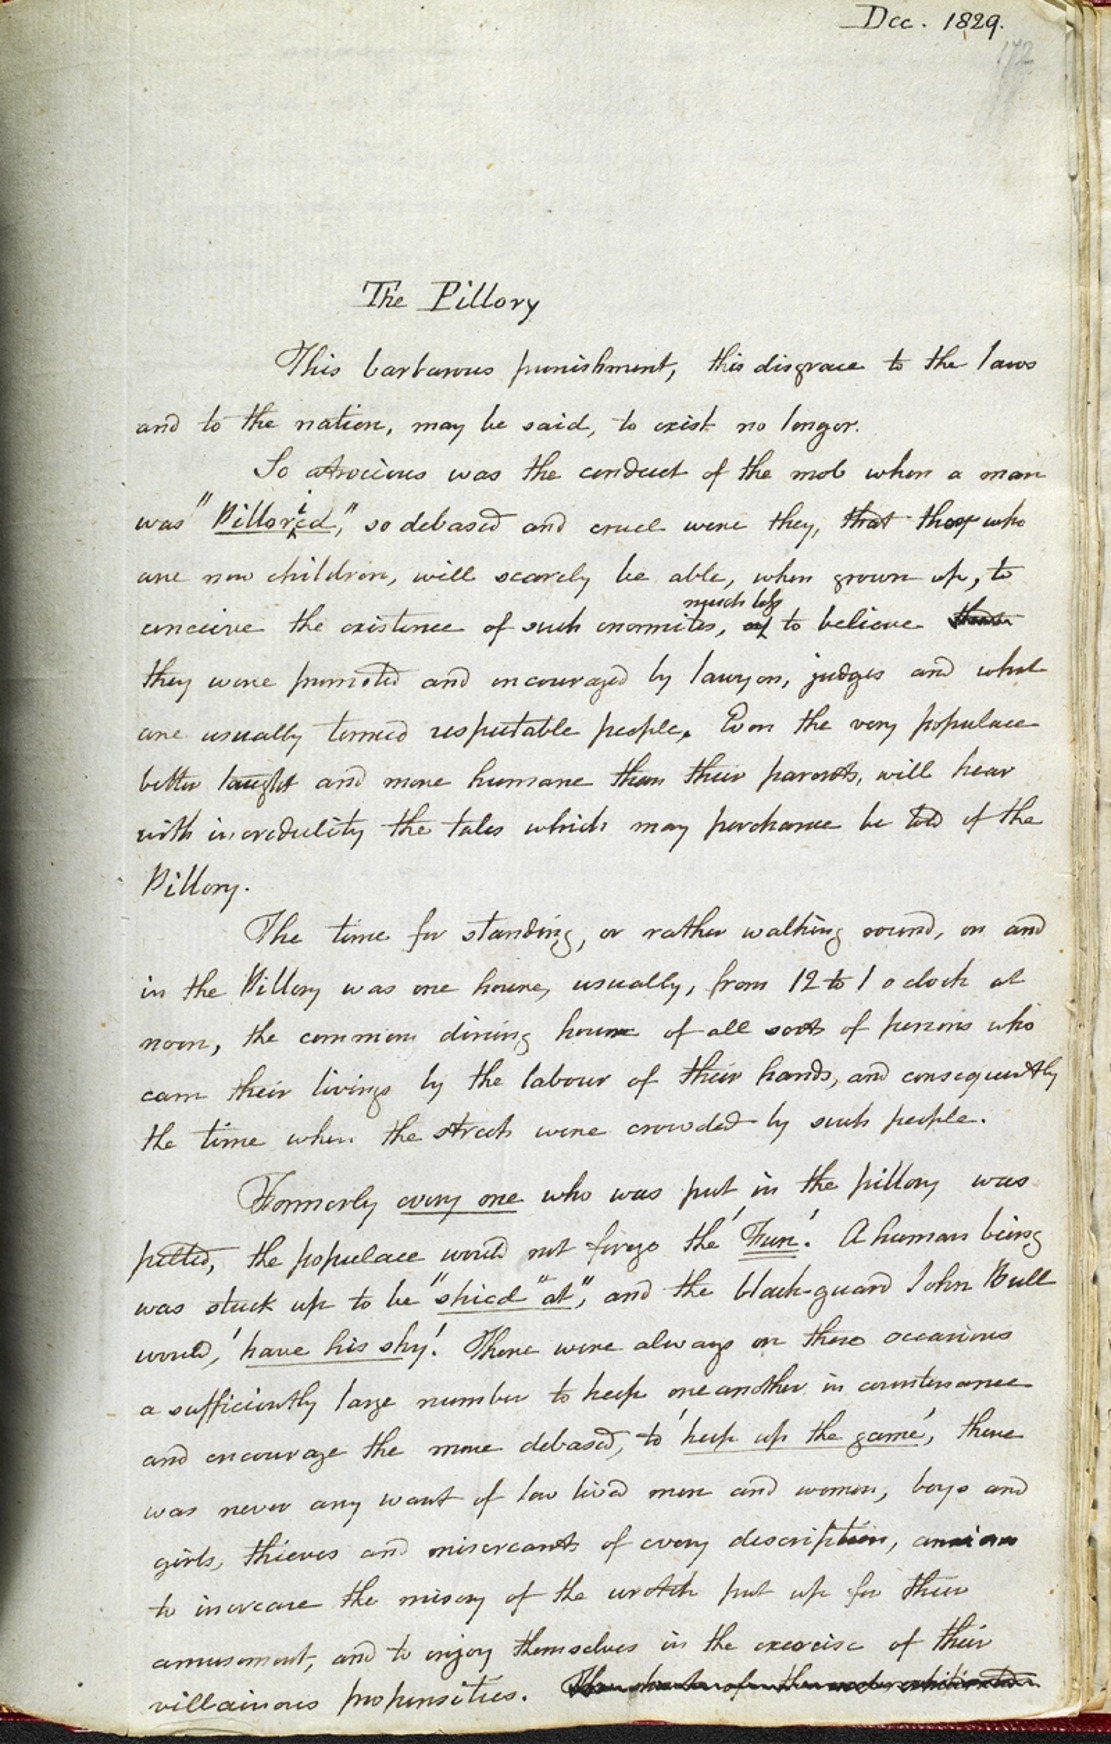 Dec. 1829.
172
The Pillory
This barbarous punishment, this disgrace to the laws
and to the nation, may be said, to exist no longer.
So atrocious was the conduct of the mob when a man
i
was "Pillored," so debased and cruel were they, that they who
are now children, will scarcely be able, when grown up, to
much less
conceive the existence of such enormites, to believe
they were promoted and encouraged by lawyers, judges and what
are usually termed respectable people. Even the very populace
better taught and more humane than their parents, will hear
with incredulity the tales which may perchance be told of the
Pillory.
The time for standing, or rather walking round, on and
in the Pillory was one houre, usually, from 12 to 1 o clock at
noon, the common dining houre of all sorts of persons who
earn their livings by the labour of their hands, and consequently
the time when the streets were crowded by such people.
Formerly every one who was put in the pillory was
pelted, the populace would not forego the 'Fun'. A human being
was stuck up to be "shied" at", and the black-guard John Bull
would, 'have his shy'. There were always on these occasions
a sufficiently large number to keep one another in countenance
and encourage the more debased, to 'keep up the game', there
was never any want of low lived men and women, boys and
girls, thieves and miscreants of every description, anxious
to increase the misery of the wretch put up for their
amusement, and to enjoy themselves in the exercise of their
villainous propensities.